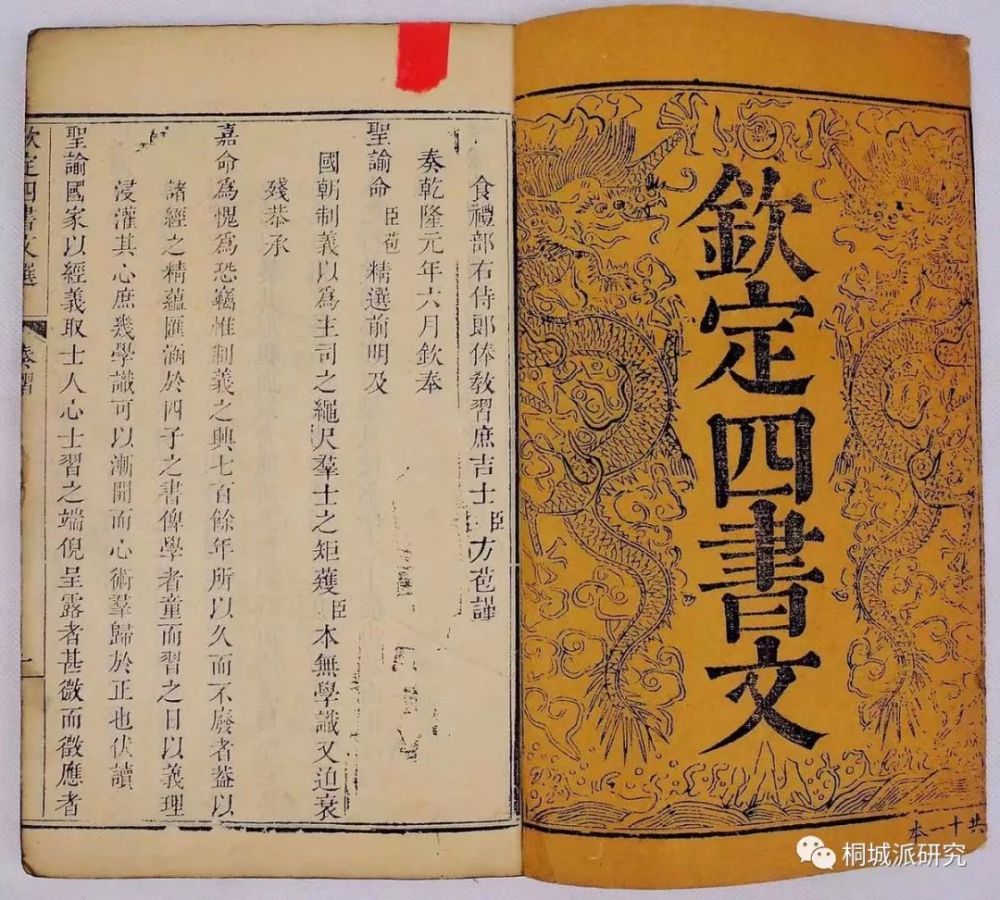 欽定四書文
共十一本
食禮部右侍郎俸教習庶吉士臣方苞謹
奏乾隆元年六月欽奉
聖諭命臣苞精選前明及
國朝制義以爲主司之繩尺羣士之矩矱臣本無學識又迫衰
殘恭承
嘉命爲愧爲恐竊惟制義之興七百餘年所以久而不廢者葢以
諸經之精蘊匯涵於四子之書俾學者童而習之日以義理
浸灌其心庶幾學識可以漸開而心術羣歸於正也伏讀
聖諭國家以經義取士人心士習之端倪呈露者甚微而徵應者
欽定四書文選
奏摺
一
桐城派研究